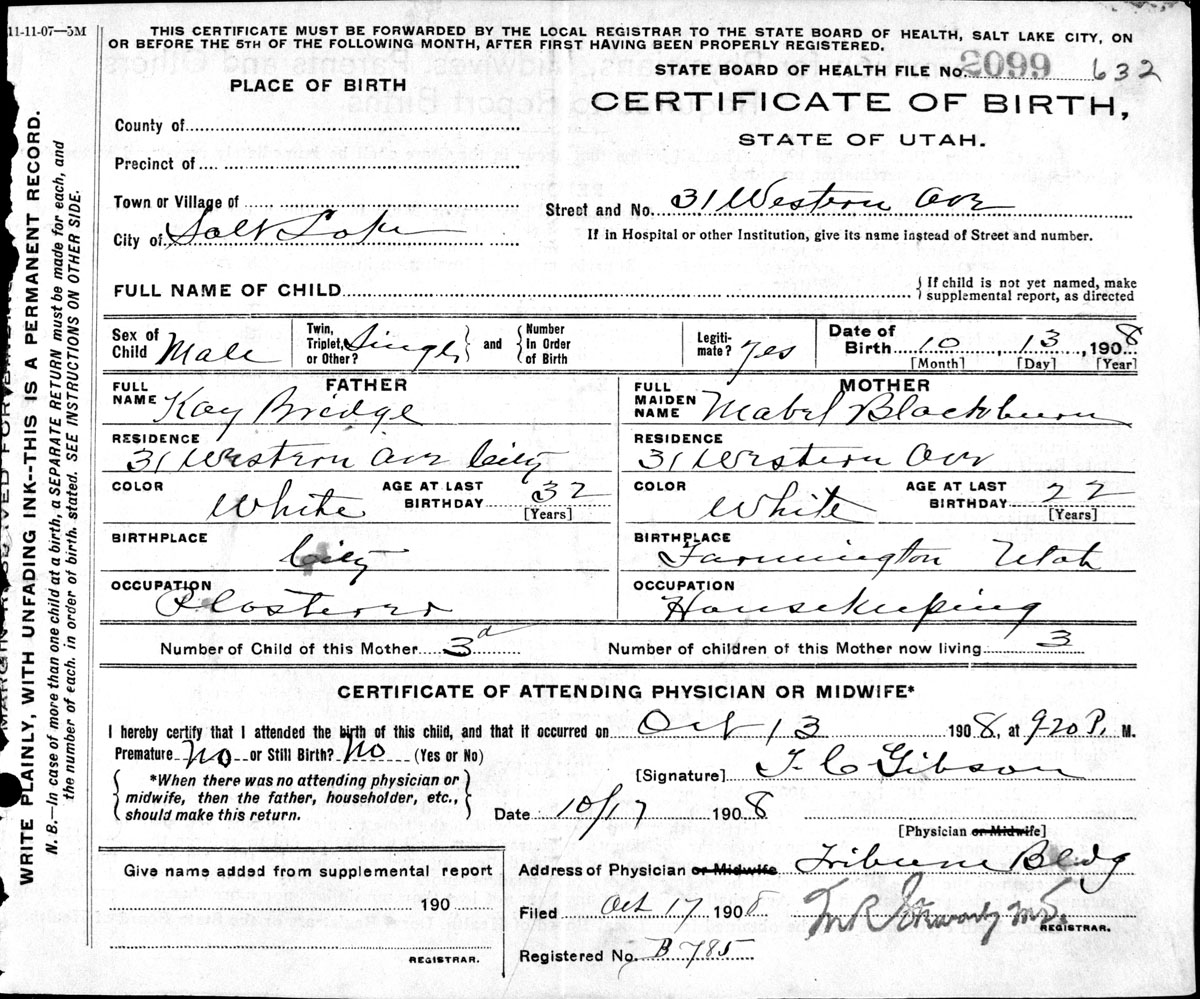 11-11-07—5M
THIS CERTIFICATE MUST BE FORWARDED BY THE LOCAL REGISTRAR TO THE STATE BOARD OF HEALTH, SALT LAKE CITY, ON
OR BEFORE THE 5TH OF THE FOLLOWING MONTH, AFTER FIRST HAVING BEEN PROPERLY REGISTERED.
STATE BOARD OF HEALTH FILE No. 2099 632
PLACE OF BIRTH
CERTIFICATE OF BIRTH,
STATE OF UTAH.
County of
Precinct of
Town or Village of
City of Salt Lake
Street and No. 31 Western Ave
If in Hospital or other Institution, give its name instead of Street and number.
FULL NAME OF CHILD
If child is not yet named, make
supplemental report, as directed
Sex of Child Male
Twin, Triplet, or Other? Single and Number In Order of Birth
Legiti-mate? yes
Date of Birth 10 13, 1908
[Month] [Day] [Year]
FATHER
FULL NAME Kay Bridge
RESIDENCE
31 Western Ave City
COLOR White AGE AT LAST BIRTHDAY 32
[Years]
BIRTHPLACE City
OCCUPATION
Plasterer
MOTHER
FULL MAIDEN NAME Mabel Blackburn
RESIDENCE
31 Western Ave
COLOR White AGE AT LAST BIRTHDAY 22
[Years]
BIRTHPLACE
Farmington Utah
OCCUPATION
Housekeeping
Number of Child of this Mother 3d
Number of children of this Mother now living 3
CERTIFICATE OF ATTENDING PHYSICIAN OR MIDWIFE*
I hereby certify that I attended the birth of this child, and that it occurred on Oct 13 1908, at 9-20 P. M.
Premature No or Still Birth? No (Yes or No)
*When there was no attending physician or
midwife, then the father, householder, etc.,
should make this return.
[Signature] Gibson
Date 10/17 1908
[Physician or Midwife]
Give name added from supplemental report
190
REGISTRAR.
Address of Physician or Midwife Tribune Bldg
Filed Oct 17 1908
REGISTRAR.
Registered No. B 785
WRITE PLAINLY, WITH UNFADING INK--THIS IS A PERMANENT RECORD.
N. B.—In case of more than one child at a birth, a SEPARATE RETURN must be made for each, and
the number of each, in order of birth, stated. SEE INSTRUCTIONS ON OTHER SIDE.